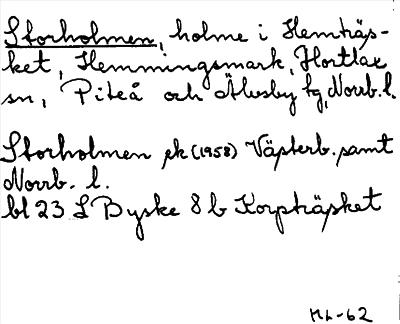 Storholmen, holme i Hemträs-
ket, Hemmingsmark, Hortlax
sn, Piteå och Älvsby tg, Norrb. l.
Storholmen ek (1958) Västerb. samt
Norrb. l.
bl 23 L Byske 8 b Korpträsket
-62